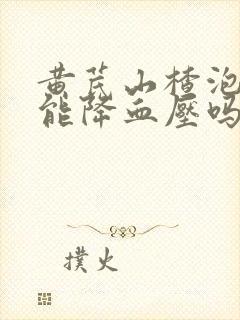 黄芪山楂泡
能降血壓吗
撲火